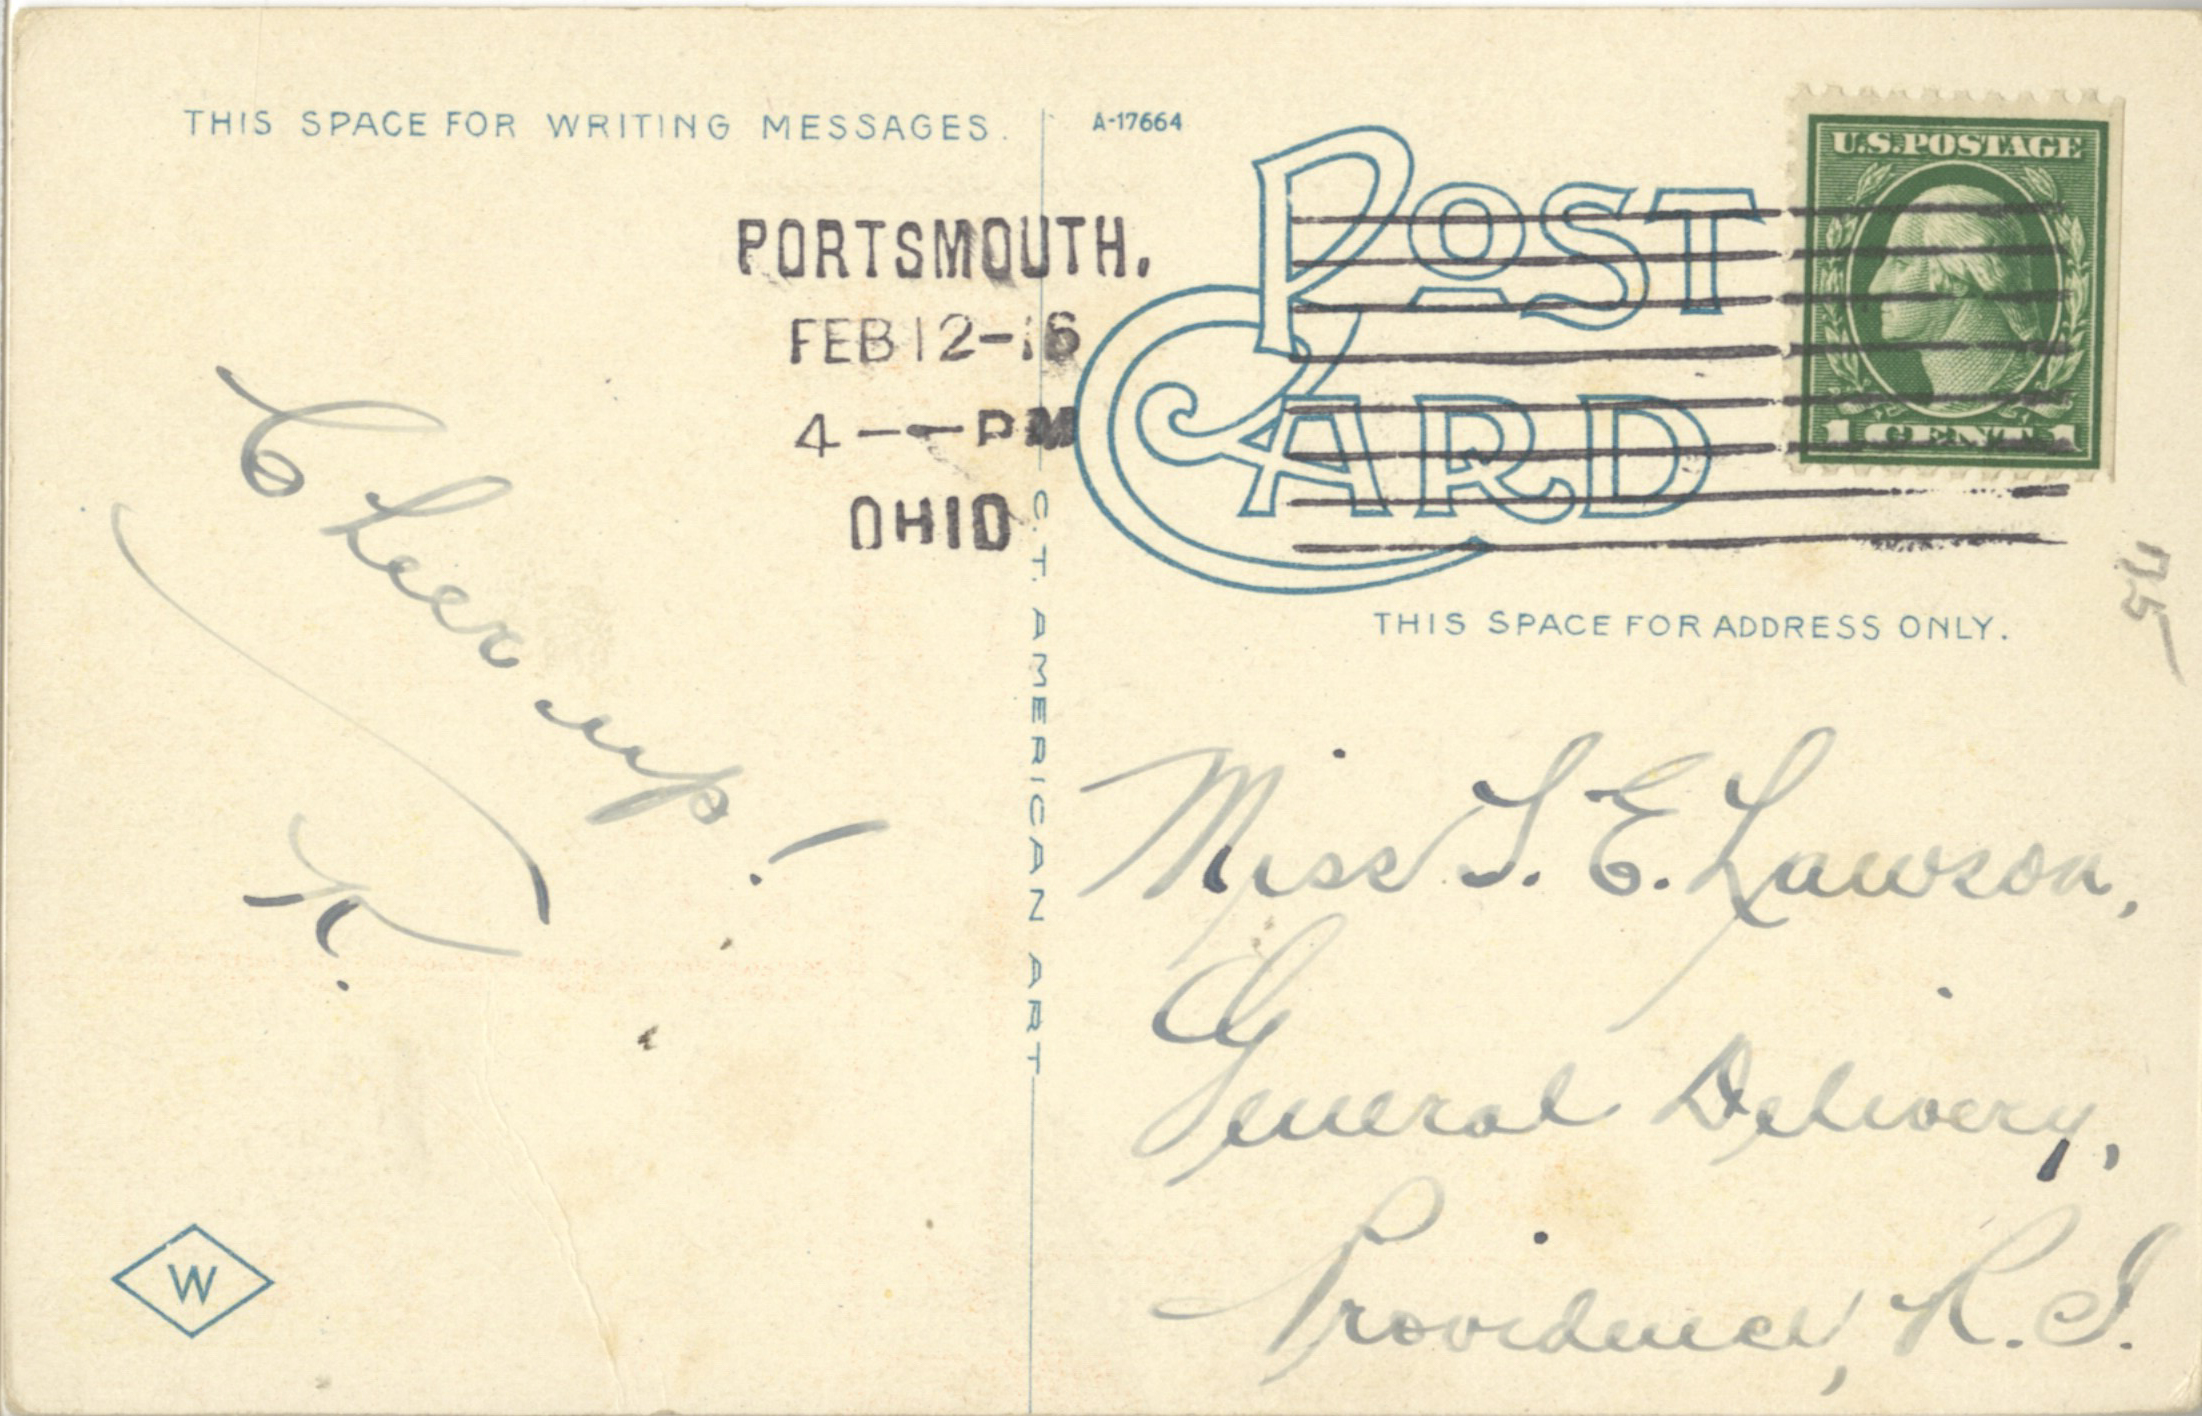 THIS SPACE FOR WRITING MESSAGES.
A-17664
POST
CARD
U.S. POSTAGE
1 CENT 1
PORTSMOUTH.
FEB 12-16
4--PM
OHIO
C.T. AMERICAN ART
THIS SPACE FOR ADDRESS ONLY.
Cheer up!
K.
W
Miss S. E. Lawson,
General Delivery,
Providence, R.I.